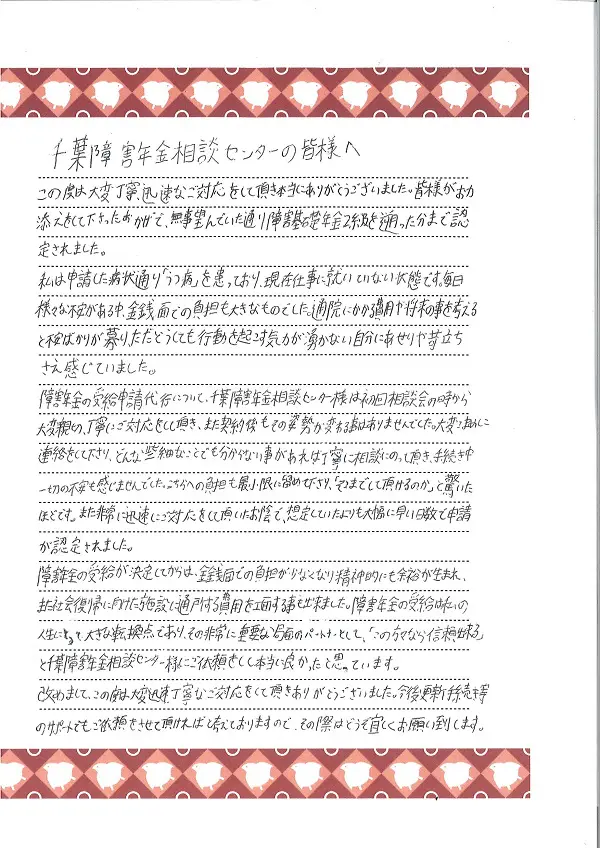 千葉障害年金相談センターの皆様へ
この度は大変丁寧、迅速なご対応をして頂き本当にありがとうございました。皆様がお力
添えをして下さったおかげで、無事望んでいた通り障害基礎年金2級を遡った分まで認
定されました。
私は申請した病状通り「うつ病」を患っており、現在仕事に就いていない状態です。毎日
様々な不安がある中、金銭面での負担も大きなものでした。通院にかかる費用や将来の事を考える
と不安ばかりが募りただどうしても行動を起こす気力が湧かない自分にあせりや苛立ち
さえ感じていました。
障害年金の受給申請代行について、千葉障害年金相談センター様は初回相談会の時から
大変親切、丁寧にご対応をして頂き、また契約後もその姿勢が変わる事はありませんでした。大変こまめに
連絡をして下さり、どんな些細なことでも分からない事があれば丁寧に相談にのって頂き、手続き中
一切の不安も感じませんでした。こちらへの負担も最小限に留め下さり、「そこまでして頂けるのか」と驚いた
ほどです。また非常に迅速にご対応をして頂いたお陰で、想定していたよりも大幅に早い日数で申請
が認定されました。
障害年金の受給が決定してからは、金銭面での負担が少なくなり精神的にも余裕が生まれ、
また社会復帰に向けた施設に通所する費用を立面する事も出来ました。障害年金の受給は私の
人生にとって大きな転換点であり、その非常に重要な局面のパートナーとして、「この方々なら信頼出来る」
と千葉障害年金相談センター様にご依頼をして本当に良かったと思っています。
改めまして、この度は大変迅速丁寧なご対応をして頂きありがとうございました。今後更新手続き等
のサポートでもご依頼をさせて頂ければと考えておりますので、その際はどうぞ宜しくお願い致します。